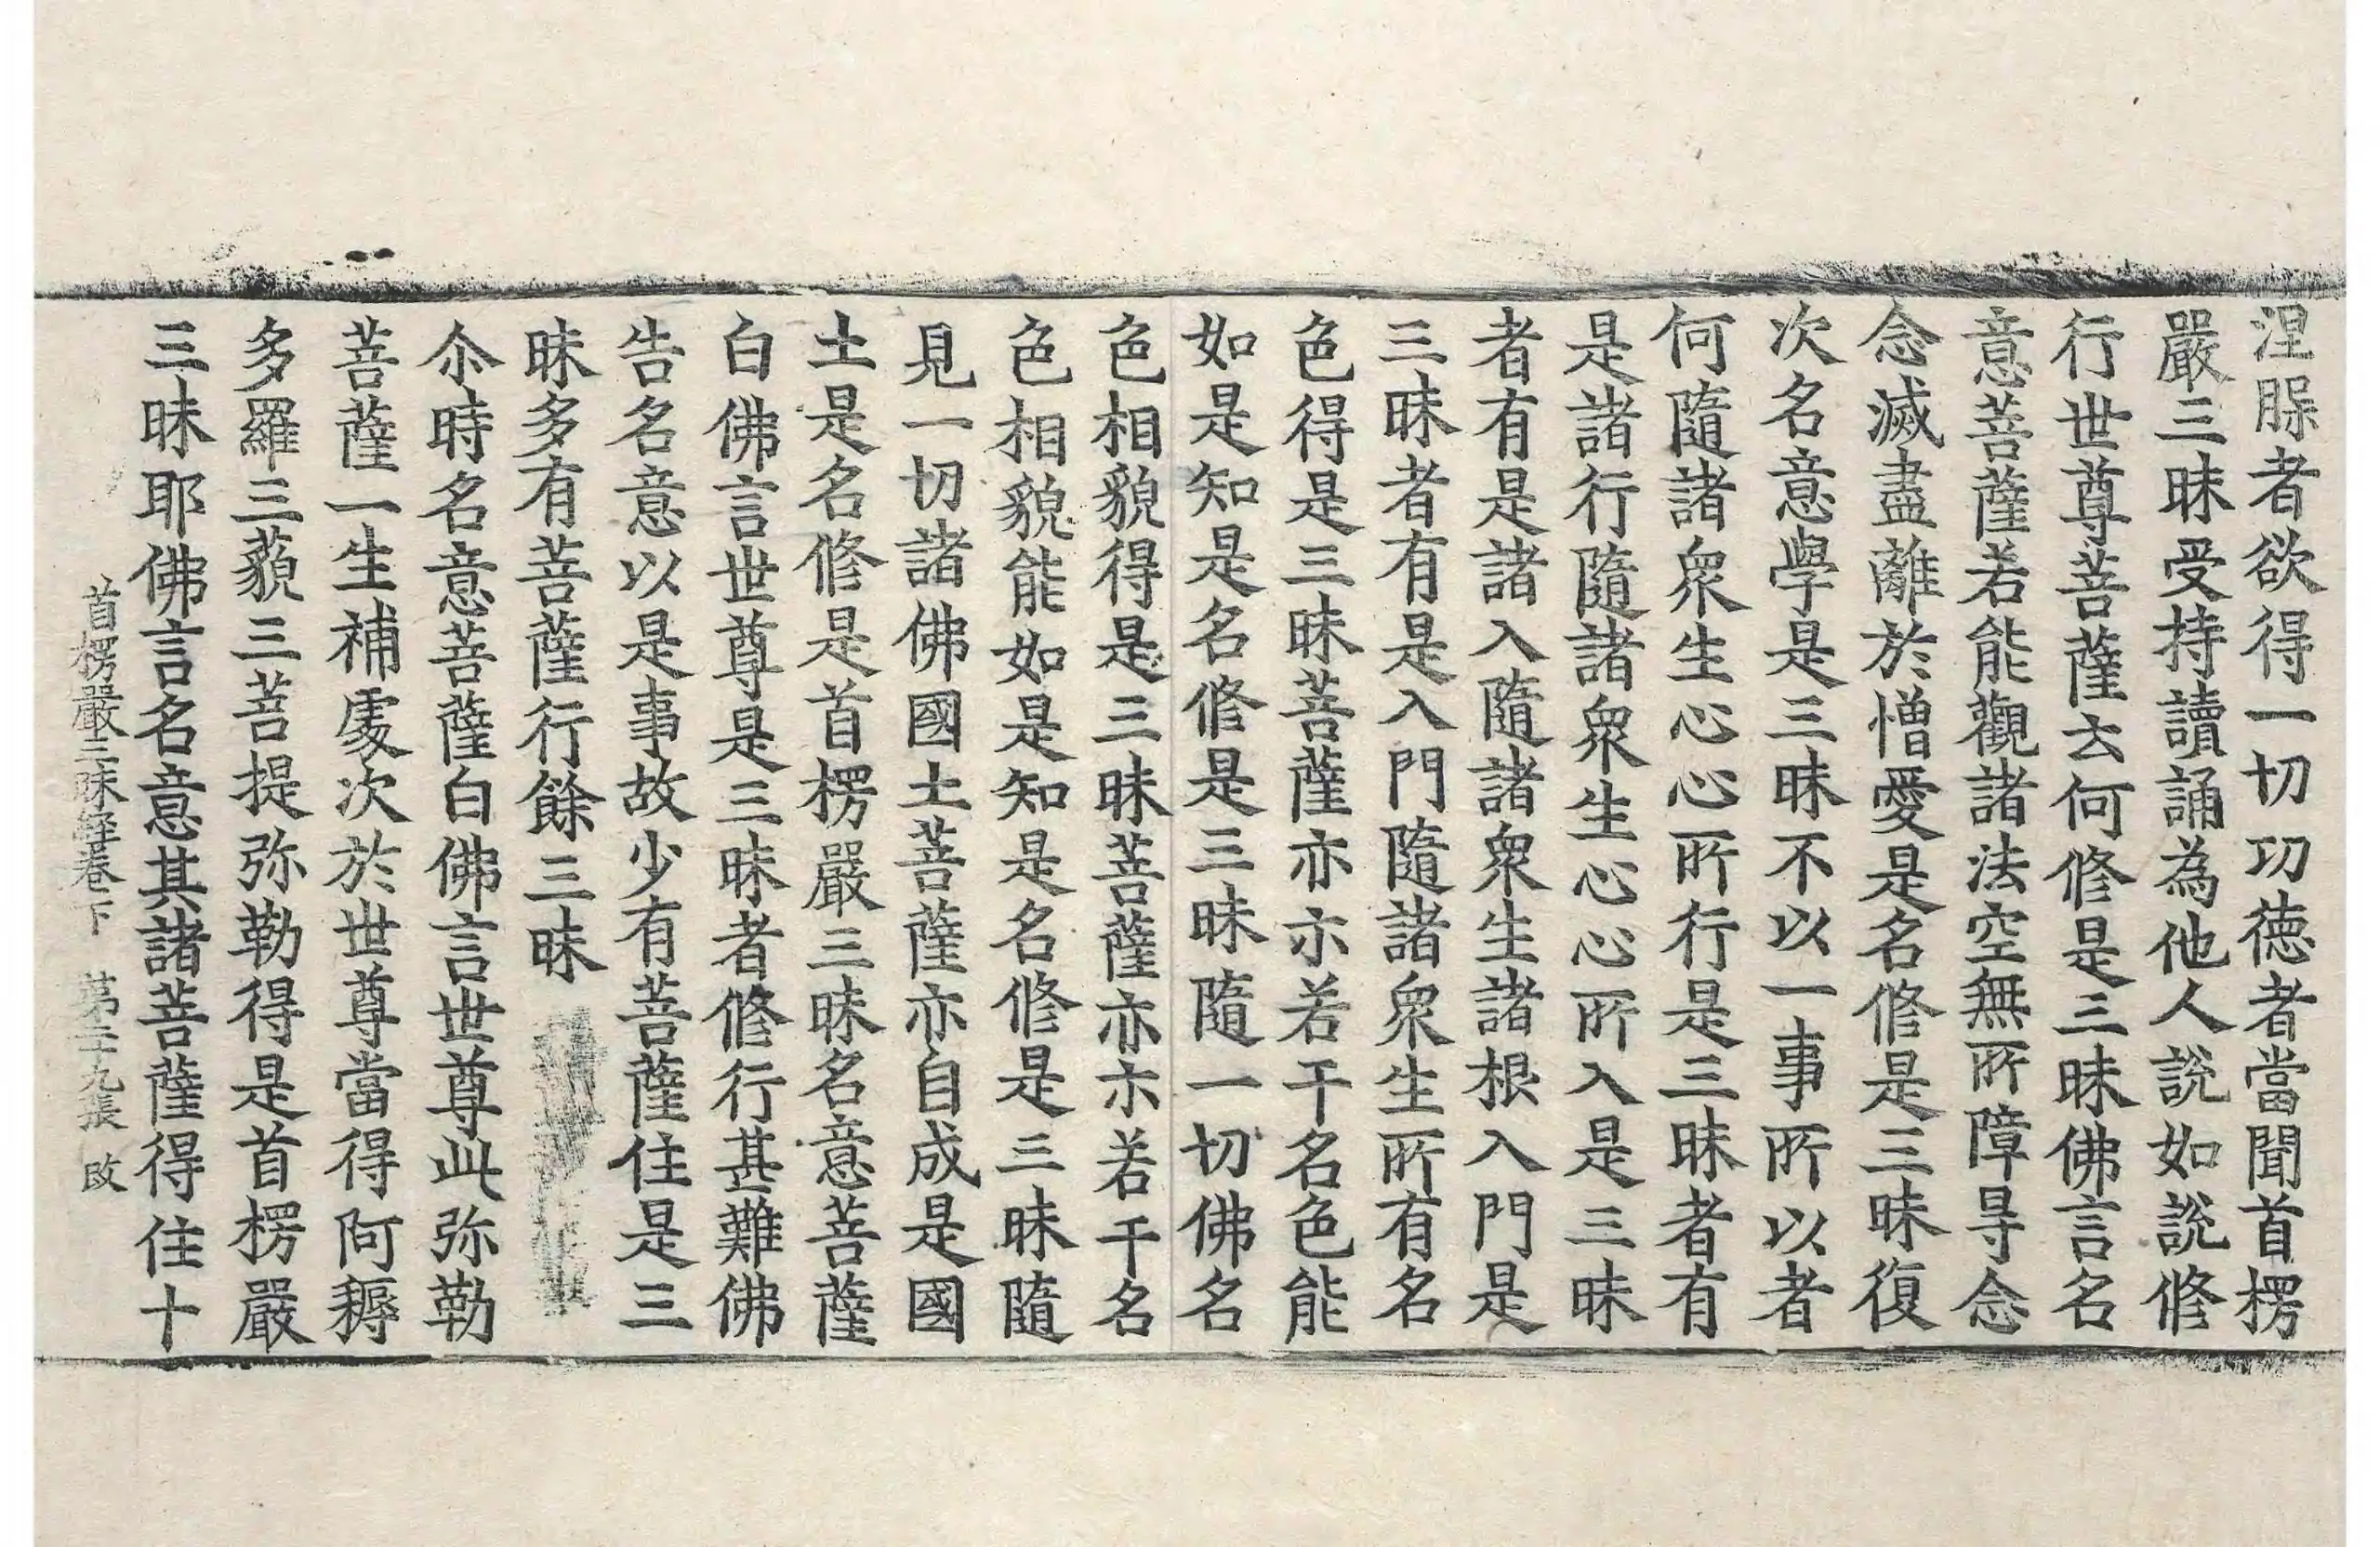 涅槃者欲得一切功德者當聞首楞
嚴三昧受持讀誦為他人說如說修
行世尊菩薩云何修是三昧佛言名
意菩薩若能觀諸法空無所障㝵念
念滅盡離於憎愛是名修是三昧復
次名意學是三昧不以一事所以者
何隨諸衆生心心所行是三昧者有
是諸行隨諸衆生心心所入是三昧
者有是諸入隨諸衆生諸根入門是
三昧者有是入門隨諸衆生所有名
色得是三昧菩薩亦尒若干名色能
如是知是名修是三昧隨一切佛名
色相貌得是三昧菩薩亦尒若干名
色相貌能如是知是名修是三昧隨
見一切諸佛國土菩薩亦自成是國
土是名修是首楞嚴三昧名意菩薩
白佛言世尊是三昧者修行甚難佛
告名意以是事故少有菩薩住是三
昧多有菩薩行餘三昧
尒時名意菩薩白佛言世尊此弥勒
菩薩一生補處次於世尊當得阿耨
多羅三藐三菩提弥勒得是首楞嚴
三昧耶佛言名意其諸菩薩得住十
首楞嚴三昧経卷下 第二十九張 改